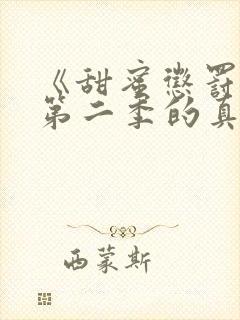 《甜蜜惩罚
第二季的真
西蒙斯